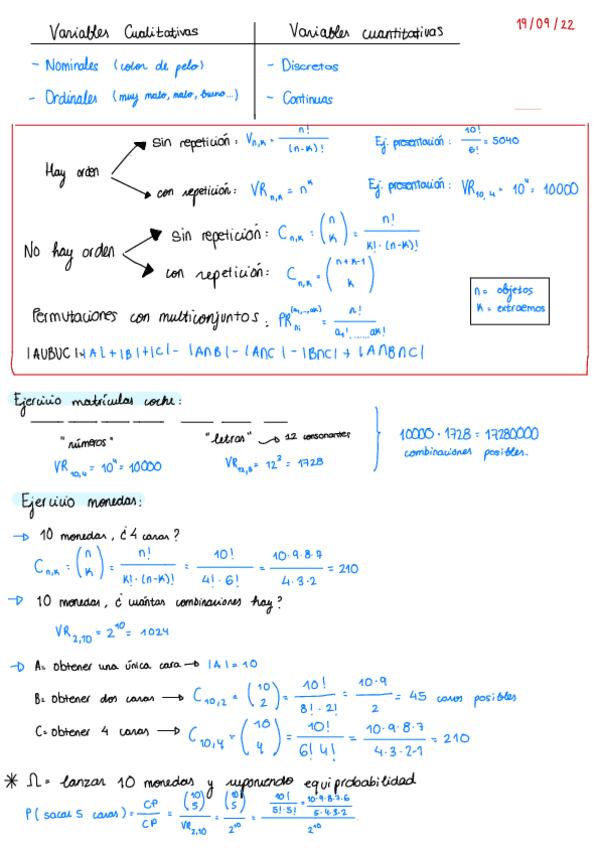 19/09/22
Variables Cualitativas | Variables cuantitativas
- Nominales (color de pelo) | - Discretas
- Ordinales (muy malo, malo, bueno...) | - Continuas
Hay orden
sin repetición: V n,k = n! / (n-k)!   Ej. presentación: 10! / 6! = 5040
con repetición: VR n,k = n^k   Ej. presentación: VR 10,4 = 10^4 = 10000
No hay orden
sin repetición: C n,k = (n k) = n! / k!·(n-k)!
con repetición: C n,k = (n+k-1 k)
n = objetos
k = extraemos
Permutaciones con multiconjuntos: PR ni (a1,...,ak) = n! / a1!.......ak!
|AUBUC| = |A| + |B| + |C| - |A∩B| - |A∩C| - |B∩C| + |A∩B∩C|
Ejercicio matrículas coche:
"números"   "letras" → 12 consonantes
VR 10,4 = 10^4 = 10000   VR 12,3 = 12^3 = 1728
10000 · 1728 = 17280000
combinaciones posibles.
Ejercicio monedas:
→ 10 monedas, ¿4 caras?
C n,k = (n k) = n! / k!·(n-k)! = 10! / 4!·6! = 10·9·8·7 / 4·3·2 = 210
→ 10 monedas, ¿cuántas combinaciones hay?
VR 2,10 = 2^10 = 1024
→ A= obtener una única cara → |A| = 10
B= obtener dos caras → C 10,2 = (10 2) = 10! / 8!·2! = 10·9 / 2 = 45 casos posibles
C= obtener 4 caras → C 10,4 = (10 4) = 10! / 6!4! = 10·9·8·7 / 4·3·2·1 = 210
* Ω = lanzar 10 monedas y suponiendo equiprobabilidad
P(sacar 5 caras) = CP / CP = (10 5) / VR 2,10 = (10 5) / 2^10 = 10! / 5!·5! = 10·9·8·7·6 / 5·4·3·2 / 2^10